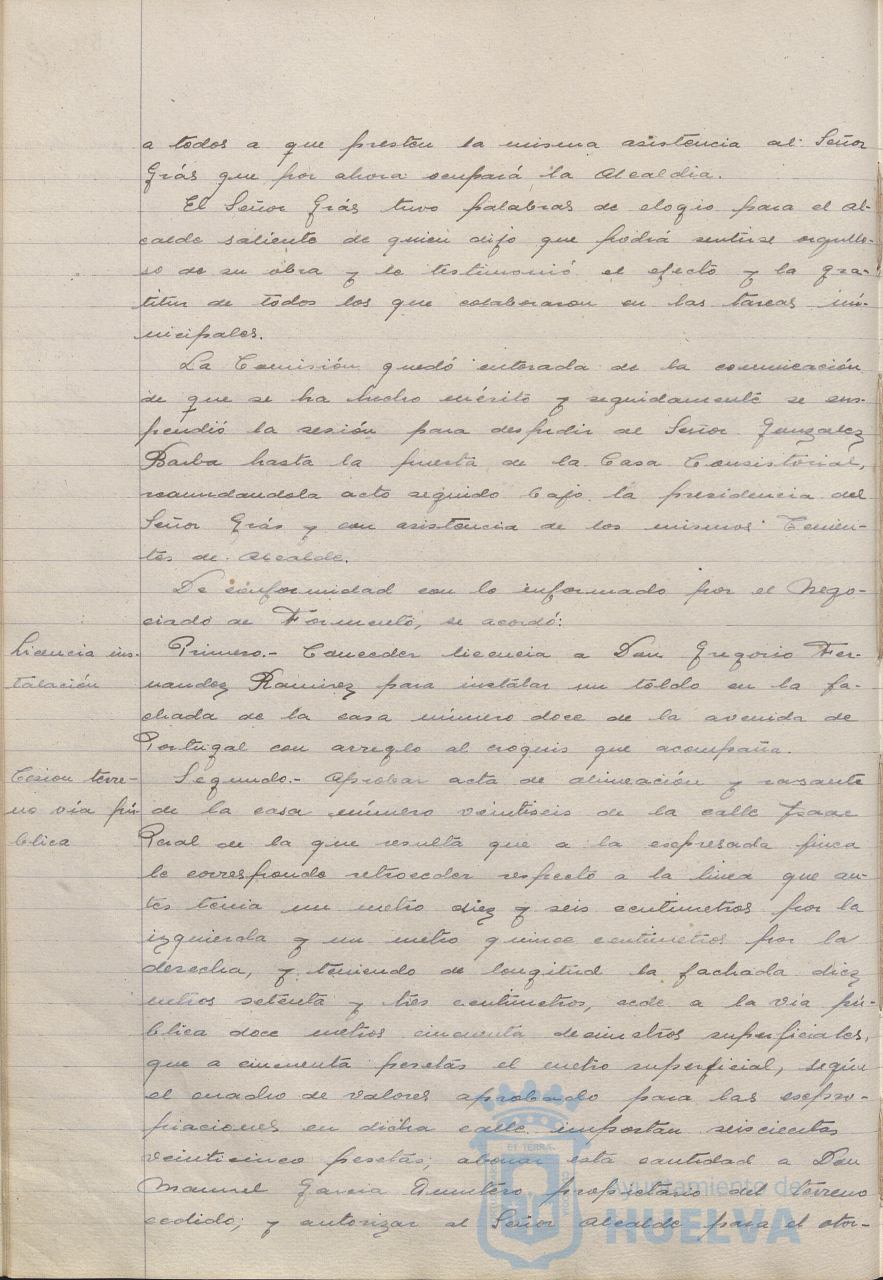 a todos a que presten la misma asistencia al Señor
Grás que por ahora ocupará la Alcaldia.
El Señor Grás tuvo palabras de elogio para el al-
calde saliente de quien dijo que podrá sentirse orgullo-
so de su obra y le testimonió el efecto y la gra-
titur de todos los que colaboraron en las tareas mu-
nicipales.
La Comisión quedó enterada de la comunicación
de que se ha hecho mérito y seguidamente se sus-
pendió la sesión para despedir al Señor Gonzalez
Barba hasta la puerta de la Casa Consistorial,
reanundandola acto seguido bajo la presidencia del
Señor Grás y con asistencia de los mismos Tenien-
tes de Alcalde.
De conformidad con lo informado por el Nego-
ciado de Formento, se acordó:
Licencia ins-
talación
Primero.- Conceder licencia a Don Gregorio Fer-
nandez Ramirez para instalar un toldo en la fa-
chada de la casa número doce de la avenida de
Portugal con arreglo al croquis que acompaña.
Cesion terre-
no vía pú-
blica
Segundo.- Aprobar acta de alineación y rasante
de la casa número veintiseis de la calle Isaac
Peral de la que resulta que a la espresada finca
le corresponde retroceder respecto a la linea que an-
tes tenia un metro diez y seis centimetros por la
izquierda y un metro quince centimetros por la
derecha, y teniendo de longitud la fachada diez
metros setenta y tres centimetros, cede a la via pú-
blica doce metros cincuenta decimetros superficiales,
que a cincuenta pesetas el metro superficial, según
el cuadro de valores aprobado para las espro-
piaciones en dicha calle importan seiscientas
veinticinco pesetas; abonar esta cantidad a Don
Manuel Garcia Quintero propietario del terreno
cedido; y autorizar al Señor Alcalde para el otor-
Ayuntamiento de
HUELVA